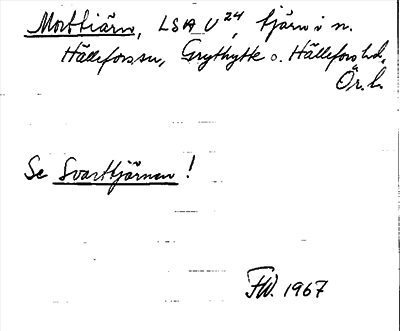 Morttiärn, LSA U 24, tjärn i n.
Hälleforssn, Grythytte o. Hällefors hd,
Ör. l.
Se Svarttjärnen!
FW. 1967